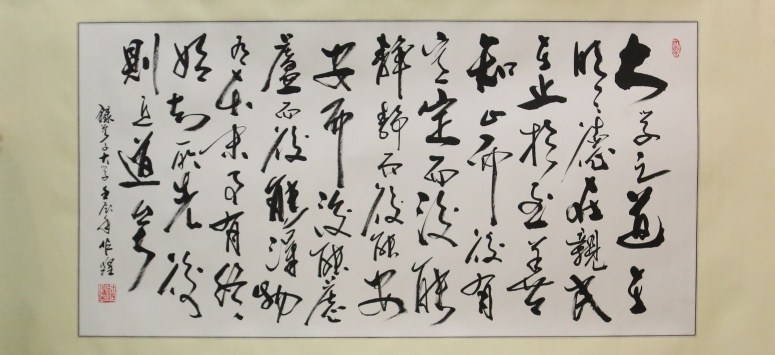 大学之道在
明明德在親民
在止於至善
知止而後有
定定而後能
靜靜而後能安
安而後能慮
慮而後能得物
有本末事有終
始知所先後
則近道矣
錄曾子大学壬辰年